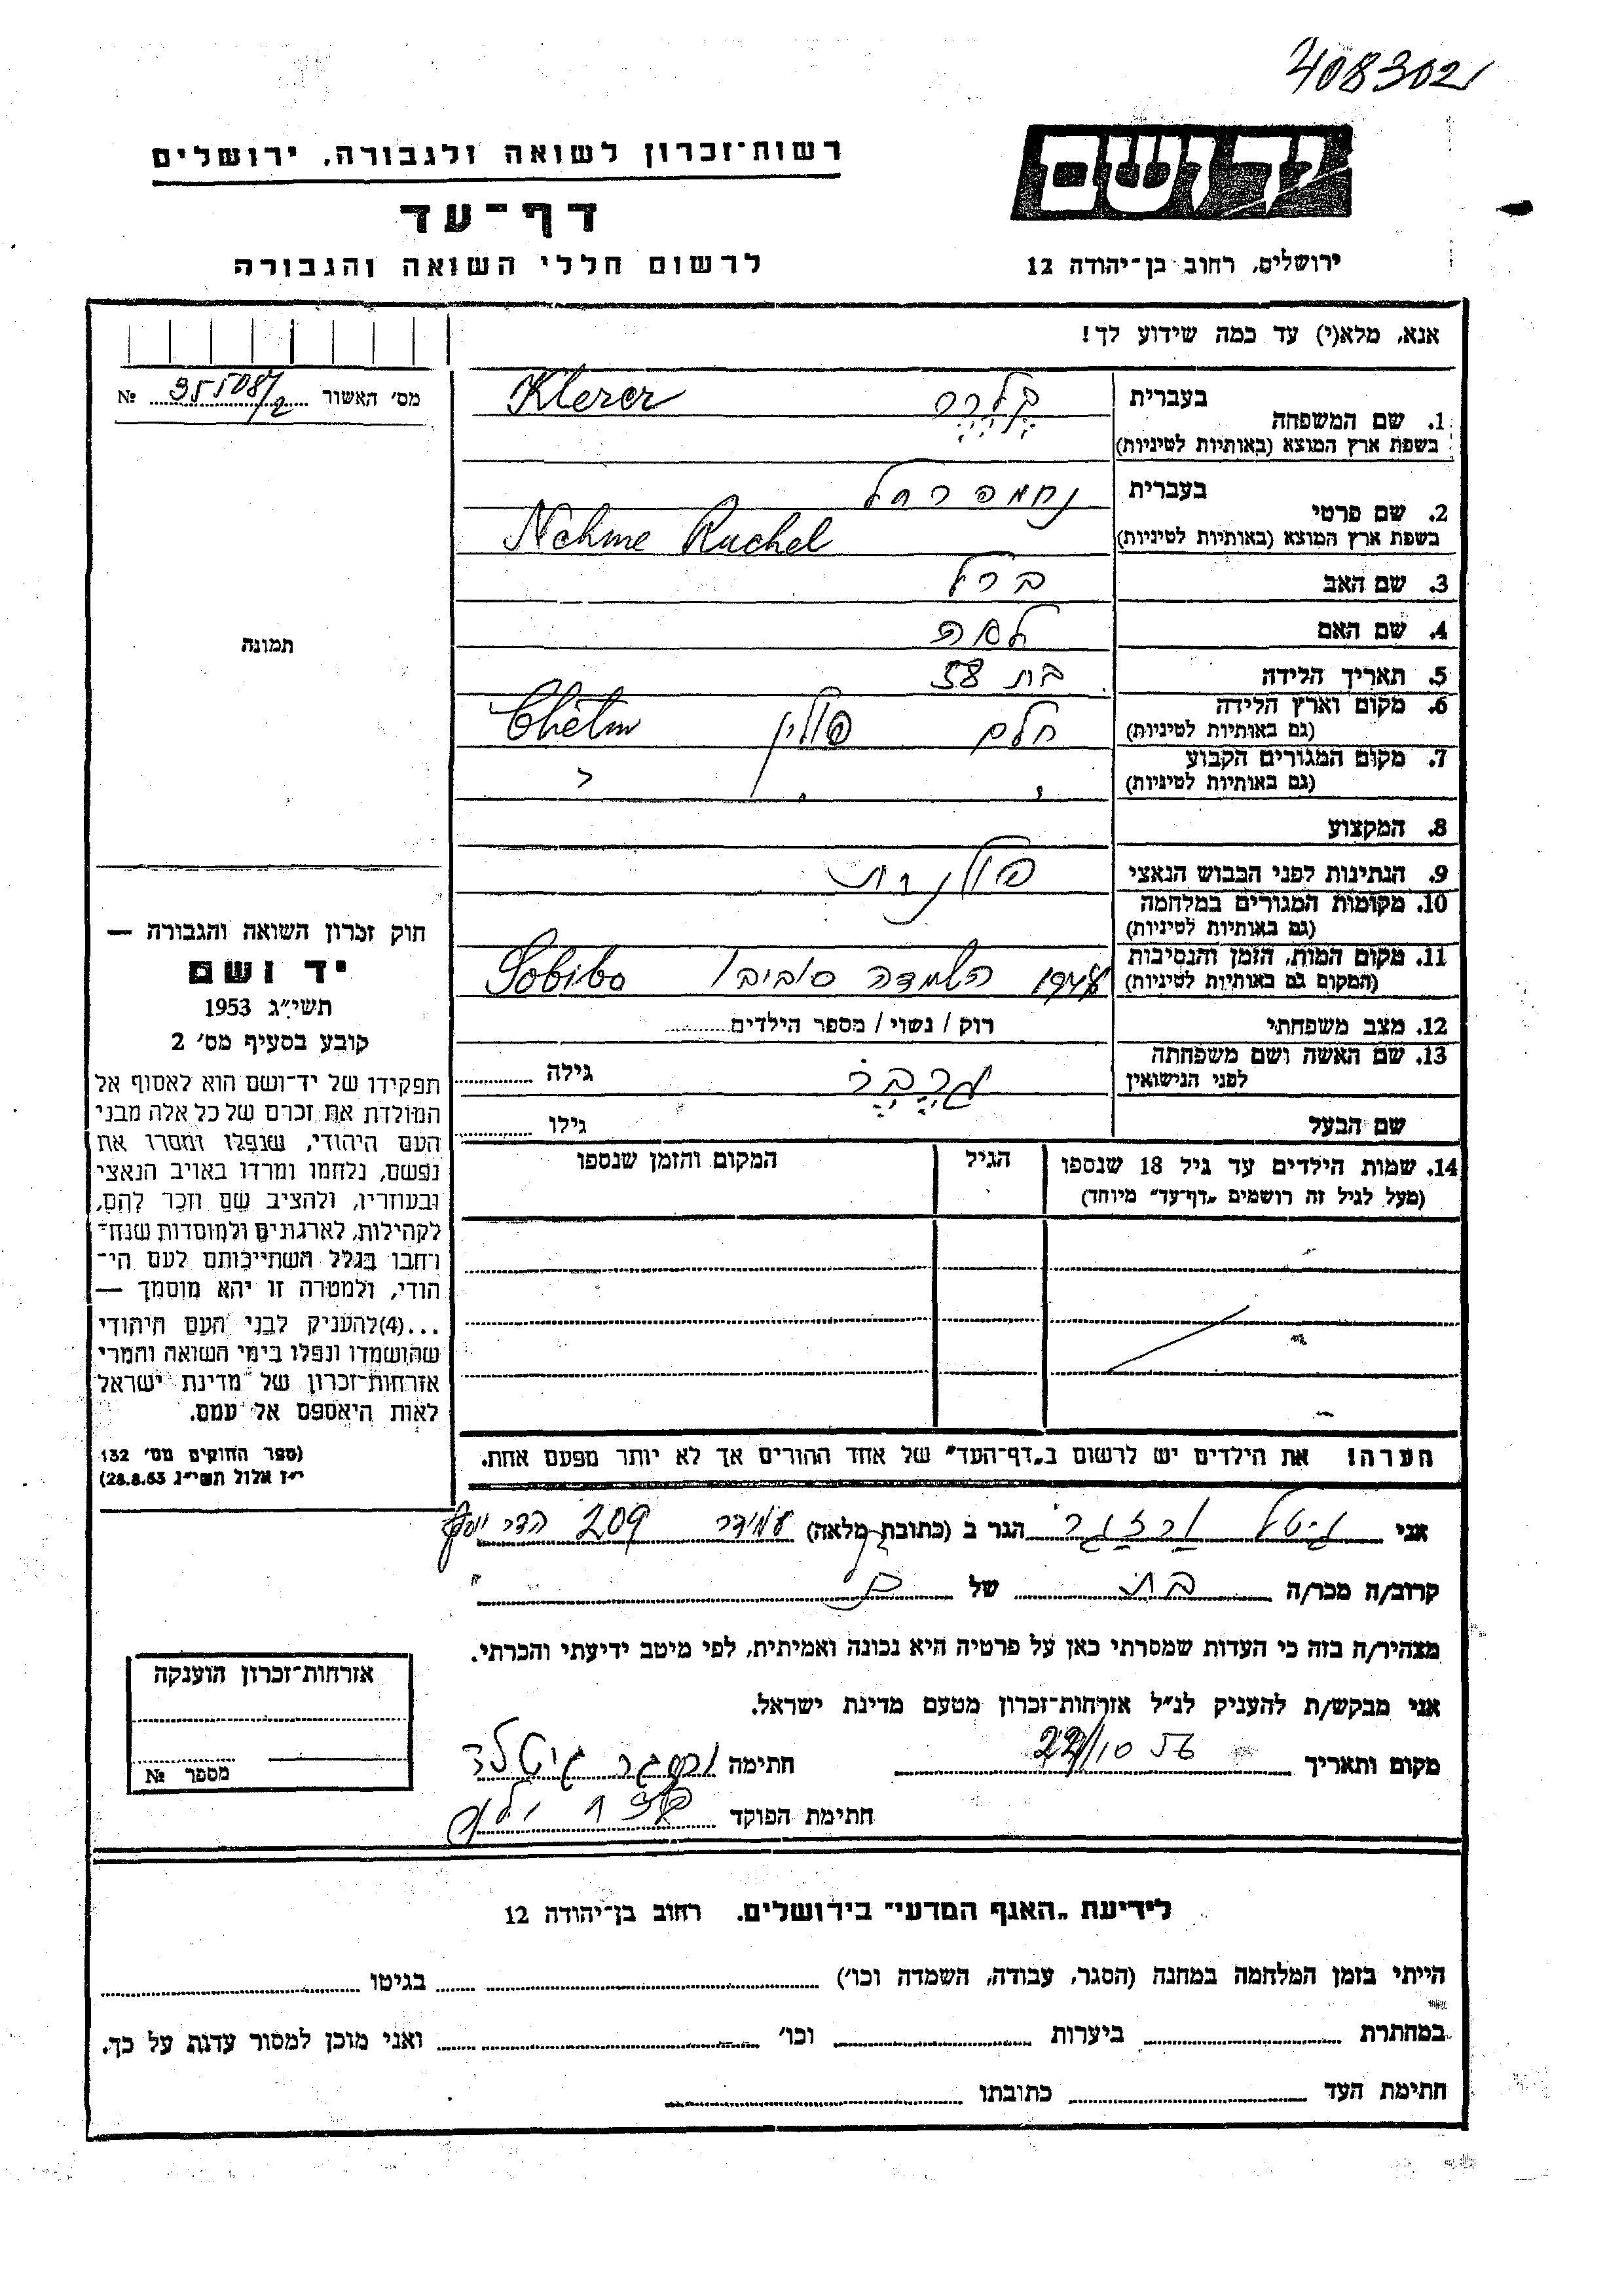 408302
יד ושם
רשות־זכרון לשואה ולגבורה, ירושלים
דף־עד
ירושלים, רחוב בן־יהודה 12
לרשום חללי השואה והגבורה
אנא, מלא(י) עד כמה שידוע לך!
מס׳ האשור 355087/2 №
בעברית
1. שם המשפחה קלרר Klerer
בשפת ארץ המוצא (באותיות לטיניות)
בעברית נחמה רחל
2. שם פרטי
בשפת ארץ המוצא (באותיות לטיניות) Nehme Ruchel
3. שם האב ברל
4. שם האם לאה
5. תאריך הלידה בת 38
6. מקום וארץ הלידה חלם פולין Chelm
(גם באותיות לטיניות)
7. מקום המגורים הקבוע
(גם באותיות לטיניות)
8. המקצוע
9. הנתינות לפני הכבוש הנאצי פולנית
10. מקומות המגורים במלחמה
(גם באותיות לטיניות)
11. מקום המות, הזמן והנסיבות השמדה סוביבו Sobibo
(המקום גם באותיות לטיניות)
12. מצב משפחתי רוק / נשוי / מספר הילדים
13. שם האשה ושם משפחתה גילה
לפני הנישואין
שם הבעל גילו
14. שמות הילדים עד גיל 18 שנספו הגיל המקום והזמן שנספו
(מעל לגיל זה רושמים „דף־עד״ מיוחד)
הערה! את הילדים יש לרשום ב„דף־העד״ של אחד ההורים אך לא יותר מפעם אחת.
תמונה
חוק זכרון השואה והגבורה —
יד ושם
תשי״ג 1953
קובע בסעיף מס׳ 2
תפקידו של יד־ושם הוא לאסוף אל
המולדת את זכרם של כל אלה מבני
העם היהודי, שנפלו ומסרו את
נפשם, נלחמו ומרדו באויב הנאצי
ובעוזריו, ולהציב שם וזכר להם,
לקהילות, לארגונים ולמוסדות שנח־
רחבו בגלל השתייכותם לעם הי־
הודי, ולמטרה זו יהא מוסמך —
...(4)להעניק לבני העם היהודי
שהושמדו ונפלו בימי השואה והמרי
אזרחות־זכרון של מדינת ישראל
לאות היאספם אל עמם.
(ספר החוקים מס׳ 132
י״ז אלול תשי״ג 28.8.53)
אני גיטל הגר ב (כתובת מלאה) עמידר 209
קרוב/ה מכר/ה בת של
מצהיר/ה בזה כי העדות שמסרתי כאן על פרטיה היא נכונה ואמיתית, לפי מיטב ידיעתי והכרתי.
אני מבקש/ת להעניק לנ״ל אזרחות־זכרון מטעם מדינת ישראל.
מקום ותאריך 22/10 56 חתימה
חתימת הפוקד
אזרחות־זכרון הוענקה
מספר №
לידיעת „האגף המדעי״ בירושלים. רחוב בן־יהודה 12
הייתי בזמן המלחמה במחנה (הסגר, עבודה, השמדה וכו׳) בגיטו
במחתרת ביערות וכו׳ ואני מוכן למסור עדות על כך.
חתימת העד כתובתו